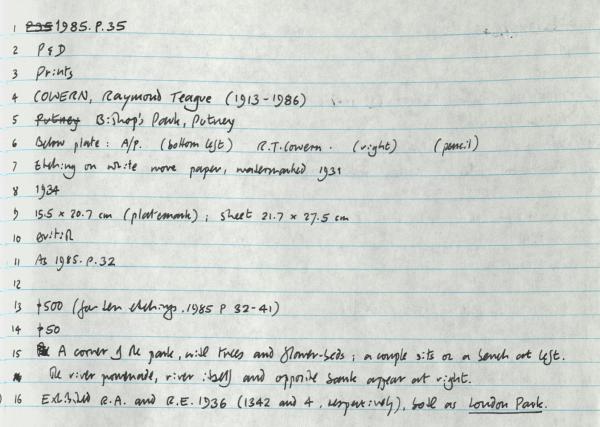 1 P35 1985.P.35
2 P & D
3 Prints
4 COWERN, Raymond Teague (1913-1986)
5 Putney Bishop's Park, Putney
6 Below plate: A/P. (bottom left) R.T. Cowern. (right) (pencil)
7 Etching on white wove paper, watermarked 1931
8 1934
9 15.5 x 20.7 cm (platemark); sheet 21.7 x 27.5 cm
10 British
11 As 1985.P.32
12
13 £500 (for ten etchings. 1985 P 32-41)
14 £50
15 A corner of the park, with trees and flower-beds; a couple sits on a bench at left.
The river promenade, river itself and opposite bank appear at right.
16 Exhibited R.A. and R.E. 1936 (1342 and 4, respectively), both as London Park.